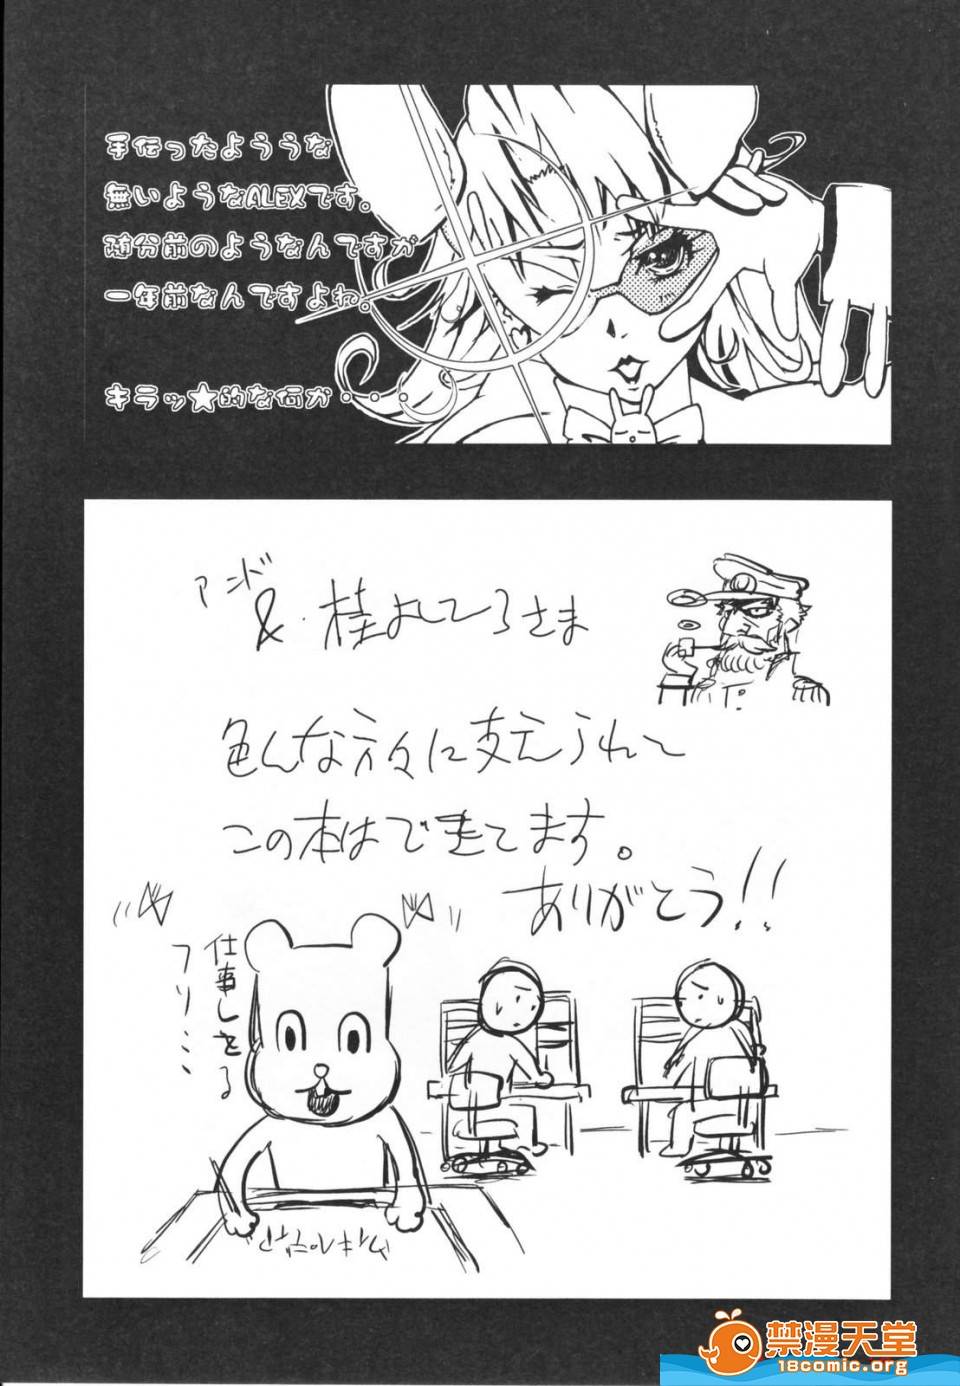 手伝ったよううな
無いようなALEXです。
随分前のようなんですが
一年前なんですよね。
キラッ★的な何か・・・
アンド
&・桂よしひろさま
色んな方々に支えられて
この本はできてます。
ありがとう!!
仕事してる
フリ・・・
禁漫天堂
18comic.org